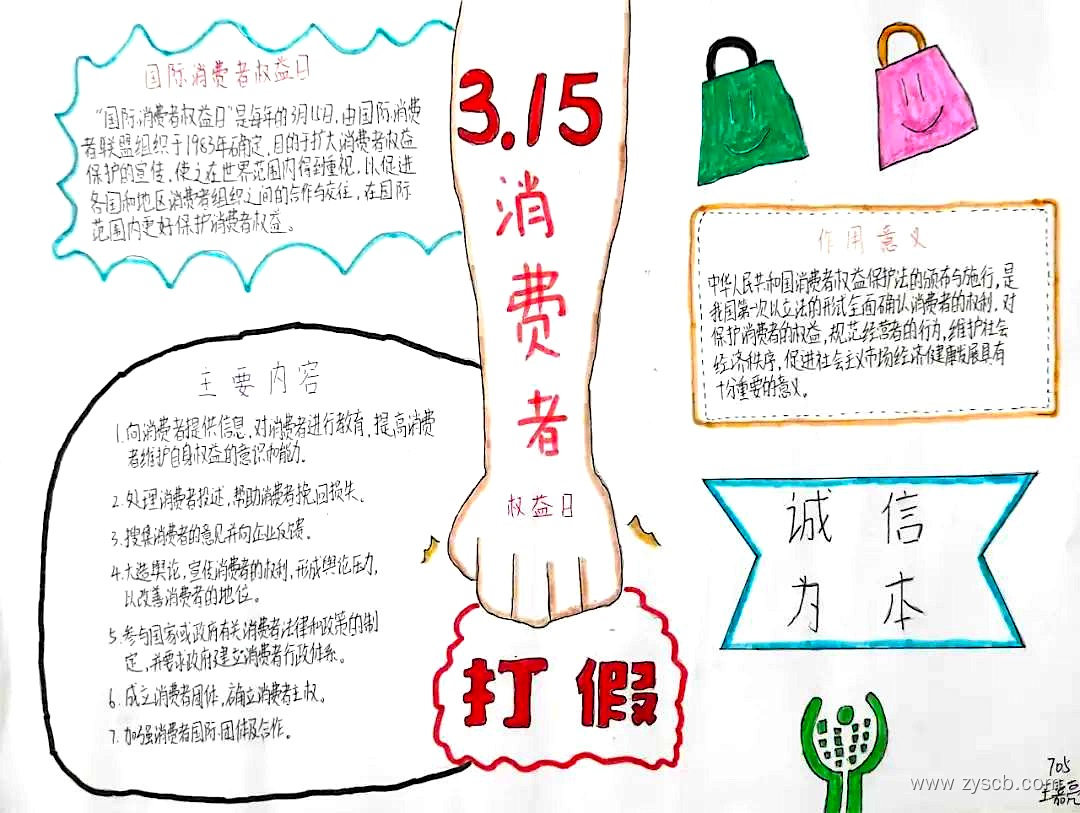 国际消费者权益日
"国际消费者权益日"是每年的3月15日,由国际消费
者联盟组织于1983年确定,目的于扩大消费者权益
保护的宣传,使之在世界范围内得到重视,以促进
各国和地区消费者组织之间的合作与交往,在国际
范围内更好保护消费者权益。
3.15
消
费
者
权益日
打假
主要内容
1.向消费者提供信息,对消费者进行教育,提高消费
者维护自身权益的意识和能力.
2.处理消费者投诉,帮助消费者挽回损失。
3.搜集消费者的意见并向企业反馈。
4.大造舆论,宣传消费者的权利,形成舆论压力,
以改善消费者的地位。
5.参与国家或政府有关消费者法律和政策的制
定,并要求政府建立消费者行政体系。
6.成立消费者团体,确立消费者主权。
7.加强消费者国际团体及合作。
作用意义
中华人民共和国消费者权益保护法的颁布与施行,是
我国第一次以立法的形式全面确认消费者的权利,对
保护消费者的权益,规范经营者的行为,维护社会
经济秩序,促进社会主义市场经济健康发展具有
十分重要的意义。
诚信
为本
705
www.zyscb.com